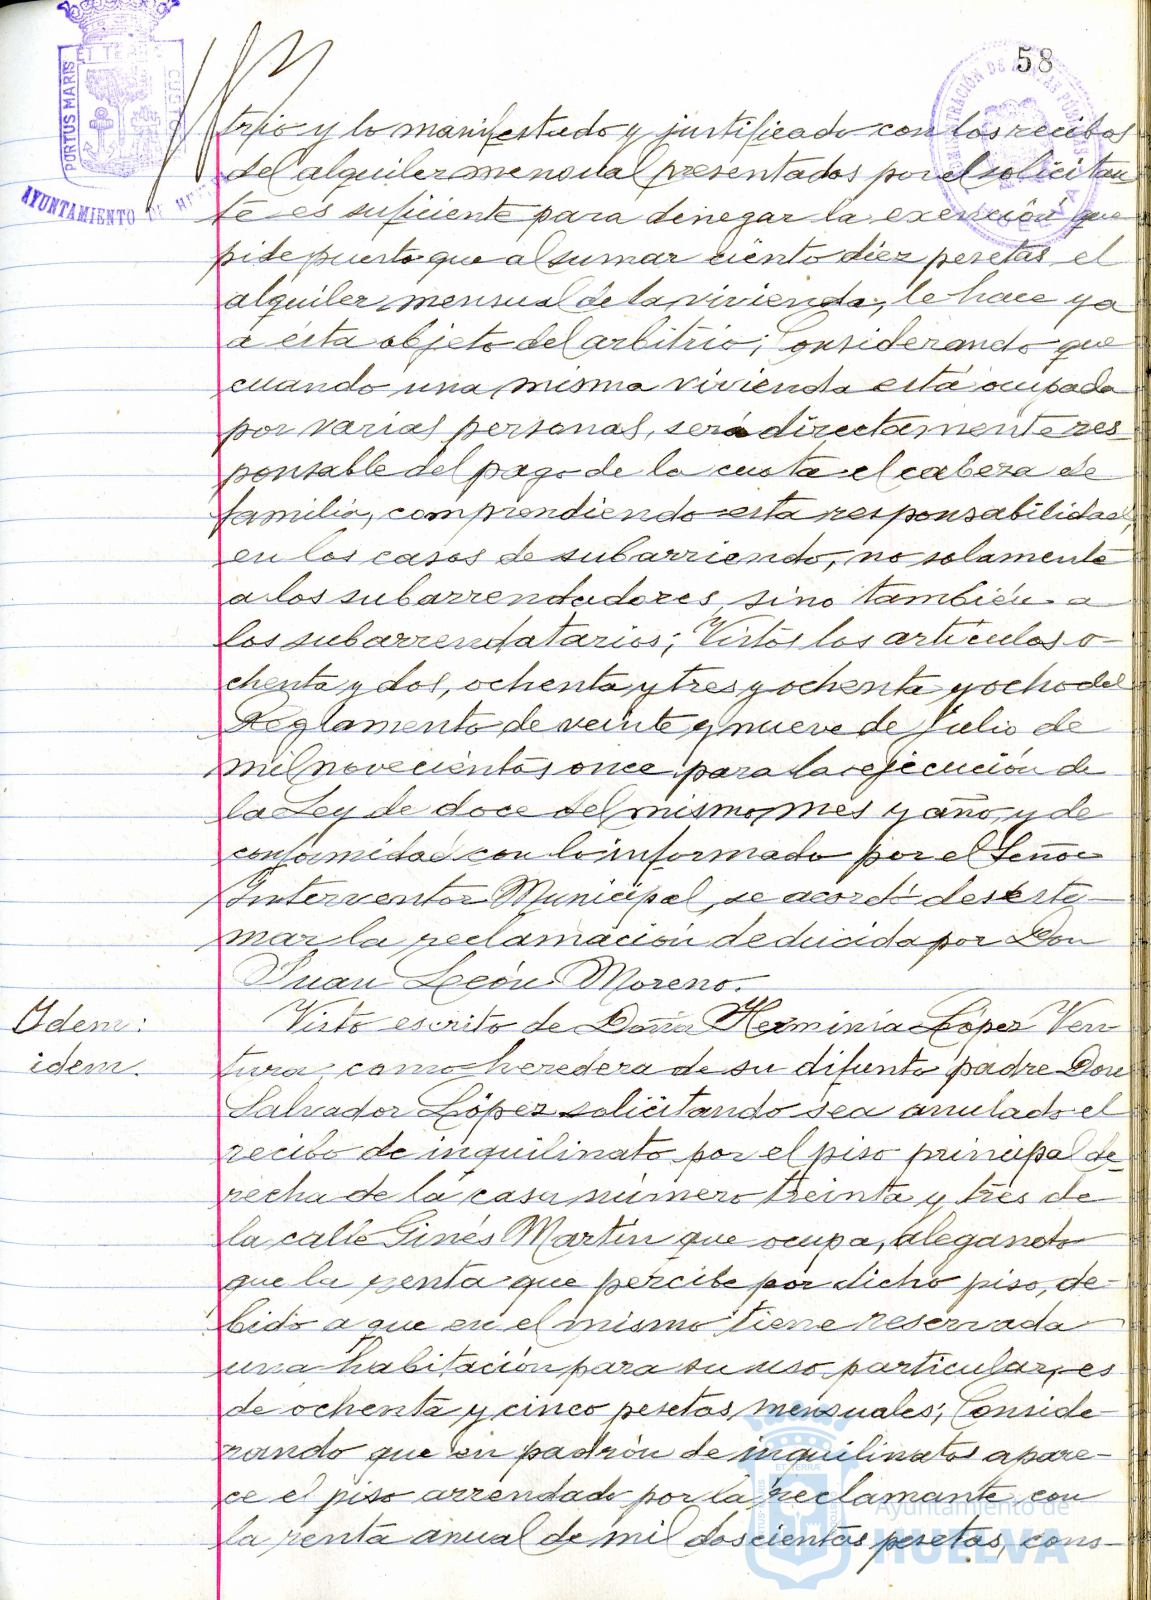 58
PORTUS MARIS
ET TERRÆ
CUSTOS
AYUNTAMIENTO DE
ADMINISTRACIÓN DE RENTAS PÚBLICAS
trio y lo manifestado y justificado con los recibos
del alquiler mensual presentados por el solicitan
te es suficiente para denegar la exención que
pide puesto que al sumar ciento diez pesetas el
alquiler mensual de la vivienda, le hace ya
a ésta objeto del arbitrio; Considerando que
cuando una misma vivienda está ocupada
por varias personas, será directamente res-
ponsable del pago de la cuota el cabeza de
familia, comprendiendo esta responsabilidad,
en los casos de subarriendo, no solamente
a los subarrendadores, sino también a
los subarrendatarios; Vistos los artículos o-
chenta y dos, ochenta y tres y ochenta y ocho del
Reglamento de veinte y nueve de Julio de
mil novecientos once para la ejecución de
la Ley de doce del mismo mes y año, y de
conformidad con lo informado por el Señor
Interventor Municipal, se acordó desesti-
mar la reclamación deducida por Don
Juan León Moreno.
Idem:
idem.
Visto escrito de Doña Herminia López Ven
tura, como heredera de su difunto padre Don
Salvador López solicitando sea anulado el
recibo de inquilinato por el piso principal de-
recha de la casa número treinta y tres de
la calle Ginés Martín que ocupa, alegando
que la renta que percibe por dicho piso, de-
bido a que en el mismo tiene reservada
una habitación para su uso particular, es
de ochenta y cinco pesetas mensuales; Conside-
rando que en padrón de inquilinatos apare-
ce el piso arrendado por la reclamante con
la renta anual de mil doscientas pesetas, cons-
Ayuntamiento de
HUELVA